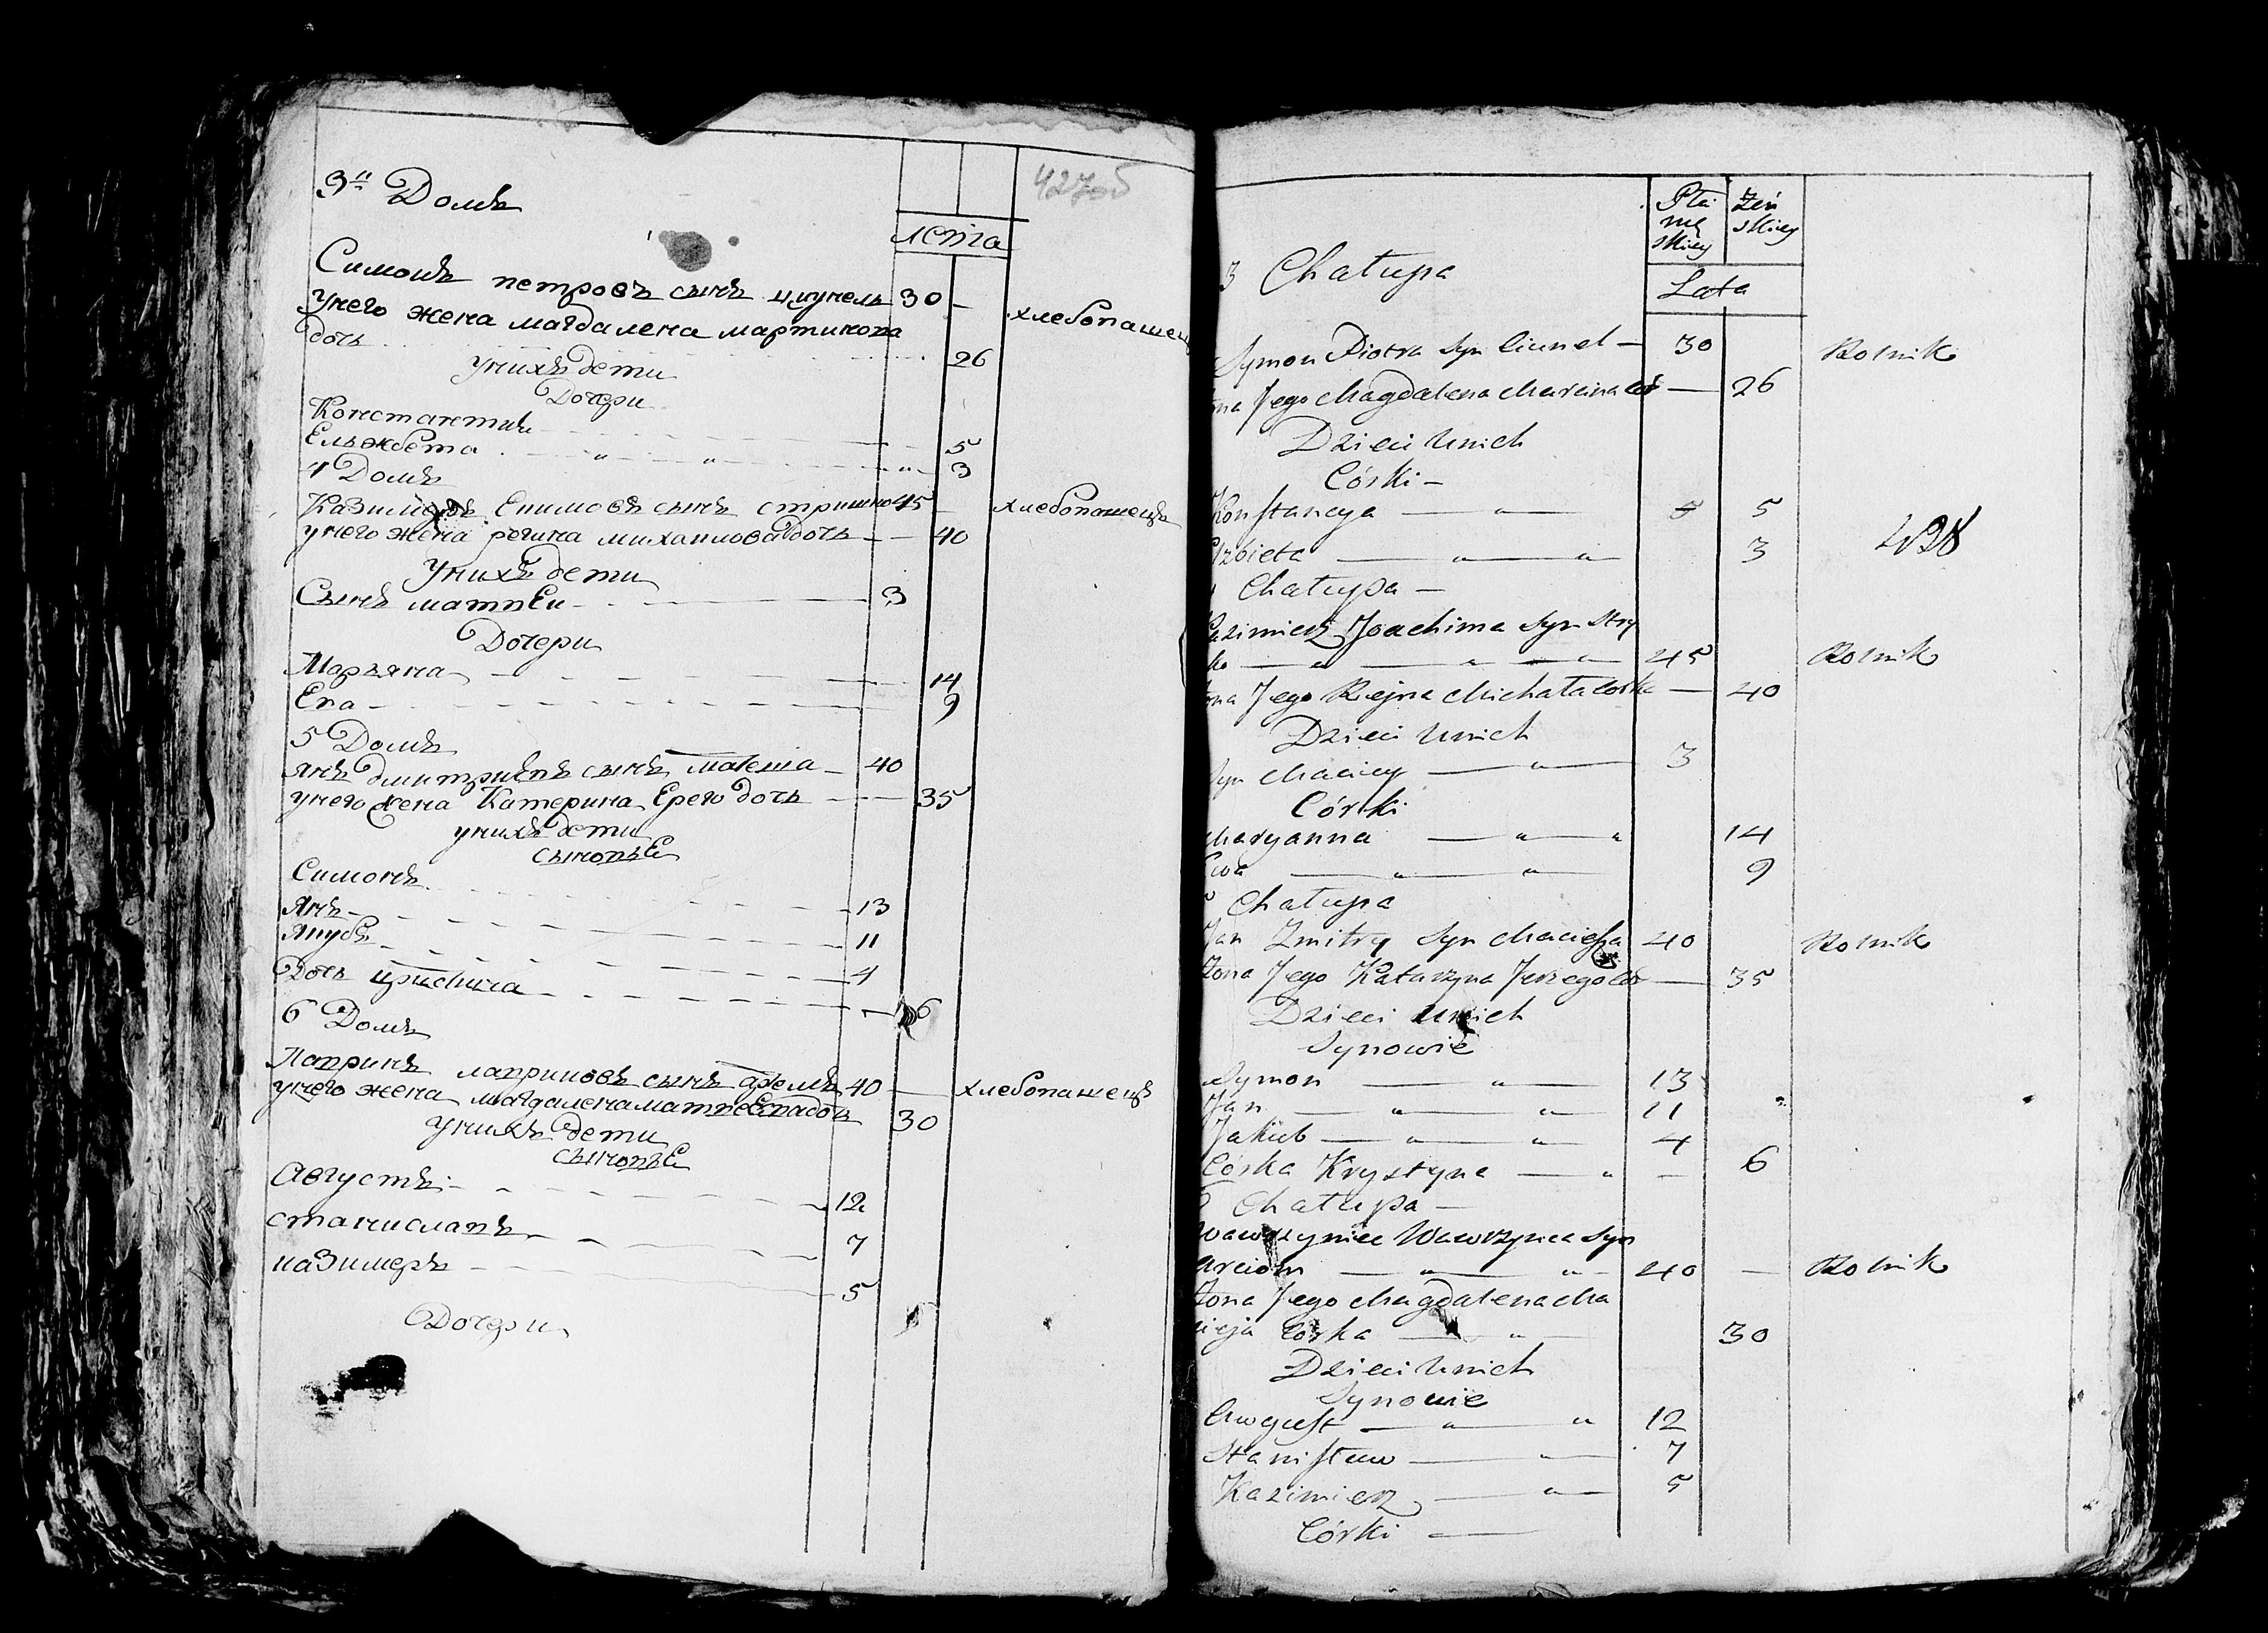 427об
3й Домъ
лета
Симонъ петровъ сынъ 30 — хлебопашец
унего жена магдалена мартинова
дочь 26
унихъ дети
Дочери
Констанстин 5
Ельжбета " " " 3
4 Домъ
Казимеръ Еимовъ сынъ стришко 45 — хлебопашецъ
унего жена регина михаилова дочь — — 40
унихъ дети
Сынъ матвеи 3
Дочери
Марьяна 14
Ева 9
5 Домъ
янъ дмитриевъ сынъ матеша 40
унего жена Катерина Ерего дочь 35
унихъ дети
сыновье
Симонъ 13
Янъ 11
Якубъ 4
Дочь кристина — 6
6 Домъ
Лавринъ лавриновъ сынъ 40 — хлебопашецъ
унего жена магдалена матвеева дочь 30
унихъ дети
сыновье
Августъ 12
станиславъ 7
казимеръ 5
Дочери
Płci męskiey Żeńskiey
3 Chałupa
Lata
Symon Piotra Syn Ciunel — 30 Rolnik
ona Jego Magdalena Marcina Cór — 26
Dzieci Unich
Córki —
Konstancya — " — 5 5
lzbieta — " — " 3
438
Chałupa —
azimierz Joachima Syn Stry
ko — " — " — " 45 Rolnik
ona Jego Rejna Michała Corka — 40
Dzieci Unich
Syn Maciey — " — 3
Córki
Maryanna — " — " 14
Ewa — " — " 9
Chałupa
Jan Zmitry Syn Maciesza 40 Rolnik
Zona Jego Katarzyna Jerzego Cór — 35
Dzieci Unich
Synowie
Symon — " — 13
Jan — " — " 11
Jakub — " — " 4
Córka Krystyna — " — 6
Chałupa —
Wawrzyniec Wawrzynca Syn
arciom — " — " — 40 — Rolnik
Zona Jego Magdalena Ma
cieja Córka — " 30
Dzieci Unich
Synowie
Awgust — " — " 12
Stanisław — " — 7
Kazimierz — " — 5
Córki —